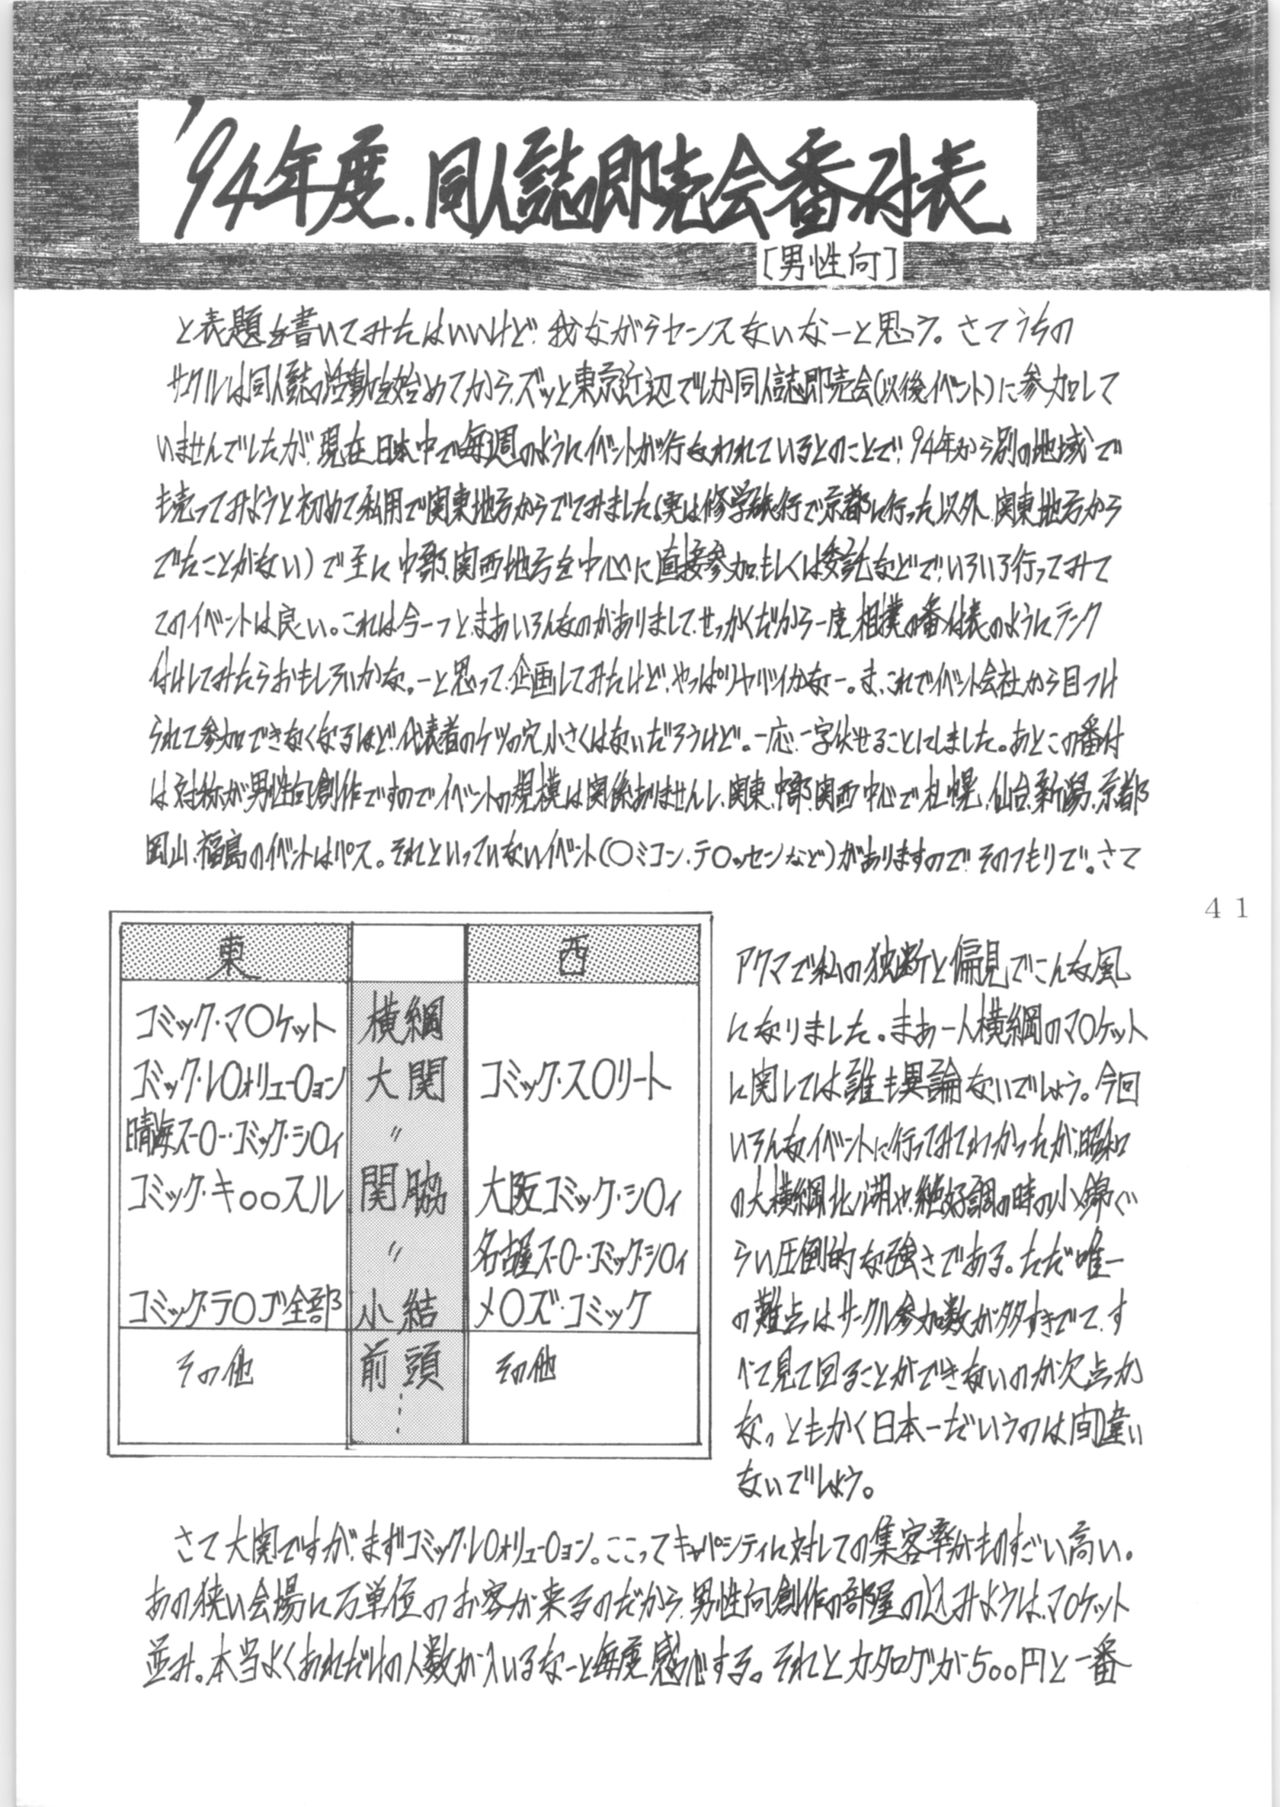 '94年度.同人誌即売会番付表
[男性向]
と表題を書いてみたはいいけど、我ながらセンスないなーと思う。さてうちの
サークルは同人誌の活動を始めてから、ズッと東京近辺でしか同人誌即売会(以後イベント)に参加して
いませんでしたが、現在日本中で毎週のようにイベントが行なわれているとのことで、94年から別の地域で
も売ってみようと初めて私用で関東地方からでてみました(実は修学旅行で京都に行った以外、関東地方から
でたことがない)で主に中部、関西地方を中心に直接参加、もしくは委託などで、いろいろ行ってみて
このイベントは良い。これは今一つと、まあいろんなのがありまして、せっかくだから一度相撲の番付表のようにランク
付けしてみたらおもしろいかな。ーと思って、企画してみたけど、やっぱりヤバイかなー。ま、これでイベント会社から目つけ
られて参加できなくなるほど、代表者のケツの穴小さくはないだろうけど。一応、一字伏せることにしました。あとこの番付
は対称が男性向創作ですのでイベントの規模は関係ありませんし、関東、中部、関西中心で札幌、仙台、新潟、京都
岡山、福島のイベントはパス。それといっていないイベント(○ミコン、テ○ッセンなど)がありますので、そのつもりで。さて
41
東 西
コミック・マ○ケット 横綱
コミック・レ○ォリュー○ョン 大関 コミック・ス○リート
晴海スー○ー・コミック・シ○ィ 〃
コミック・キ○○スル 関脇 大阪コミック・シ○ィ
〃 名古屋スー○ー・コミック・シ○ィ
コミック・テ○ノ全部 小結 メ○ズ・コミック
その他 前頭 その他
アクマで私の独断と偏見でこんな風
になりました。まあ一人横綱のマ○ケット
に関しては誰も異論ないでしょう。今回
いろんなイベントに行ってみてわかったが、昭和
の大横綱北の湖や、絶好調の時の小錦ぐ
らい圧倒的な強さである。ただ唯一
の難点はサークル参加数が多すぎてて、す
べて見て回ることができないのが欠点か
な。ともかく日本一だいうのは間違い
ないでしょう。
さて大関ですが、まずコミック・レ○ォリュー○ョン。ここってキャパシティに対しての集客率がものすごい高い。
あの狭い会場に万単位のお客が来るのだから、男性向創作の部屋の込みようは、マ○ケット
並み。本当よくあれだけの人数が入いるなーと毎度感心する。それとカタログが500円と一番